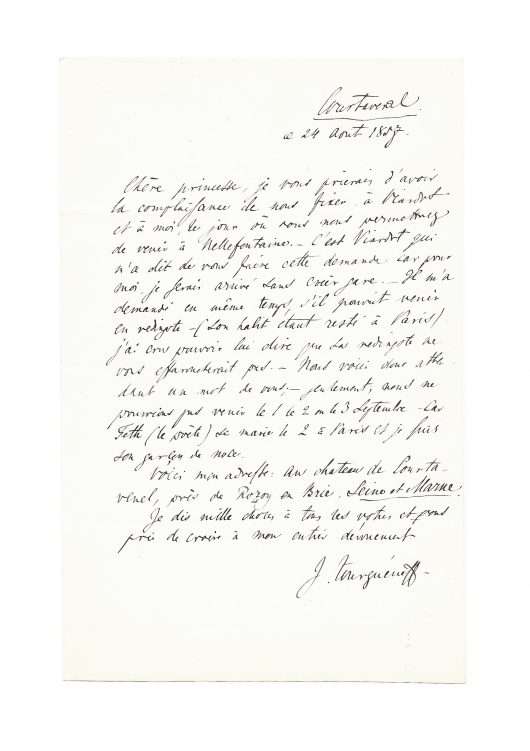 Courtavenel.
ce 24 Aout 1857.
Chère princesse, je vous prierais d'avoir
la complaisance de nous fixer à Viardot
et à moi, le jour où vous nous permettrez
de venir à Bellefontaine. – C'est Viardot qui
m'a dit de vous faire cette demande car pour
moi je serais arrivé sans crier gare. – Il m'a
demandé en même temps, s'il pouvait venir
en redingote – (son habit étant resté à Paris)
j'ai cru pouvoir lui dire que sa redingote ne
vous effaroucherait pas. – Nous voici donc atten
dant un mot de vous; – seulement, nous ne
pourrions pas venir le 1 le 2 ou le 3 Septembre – Car
Feth (le poète) se marie le 2 à Paris et je suis
son garçon de noce.
Voici mon adresse: au chateau de Courta-
venel, près de Rozoy en Brie, Seine et Marne.
Je dis mille choses à tous les votres et vous
prie de croire à mon entier dévouement
J. Tourguéneff –